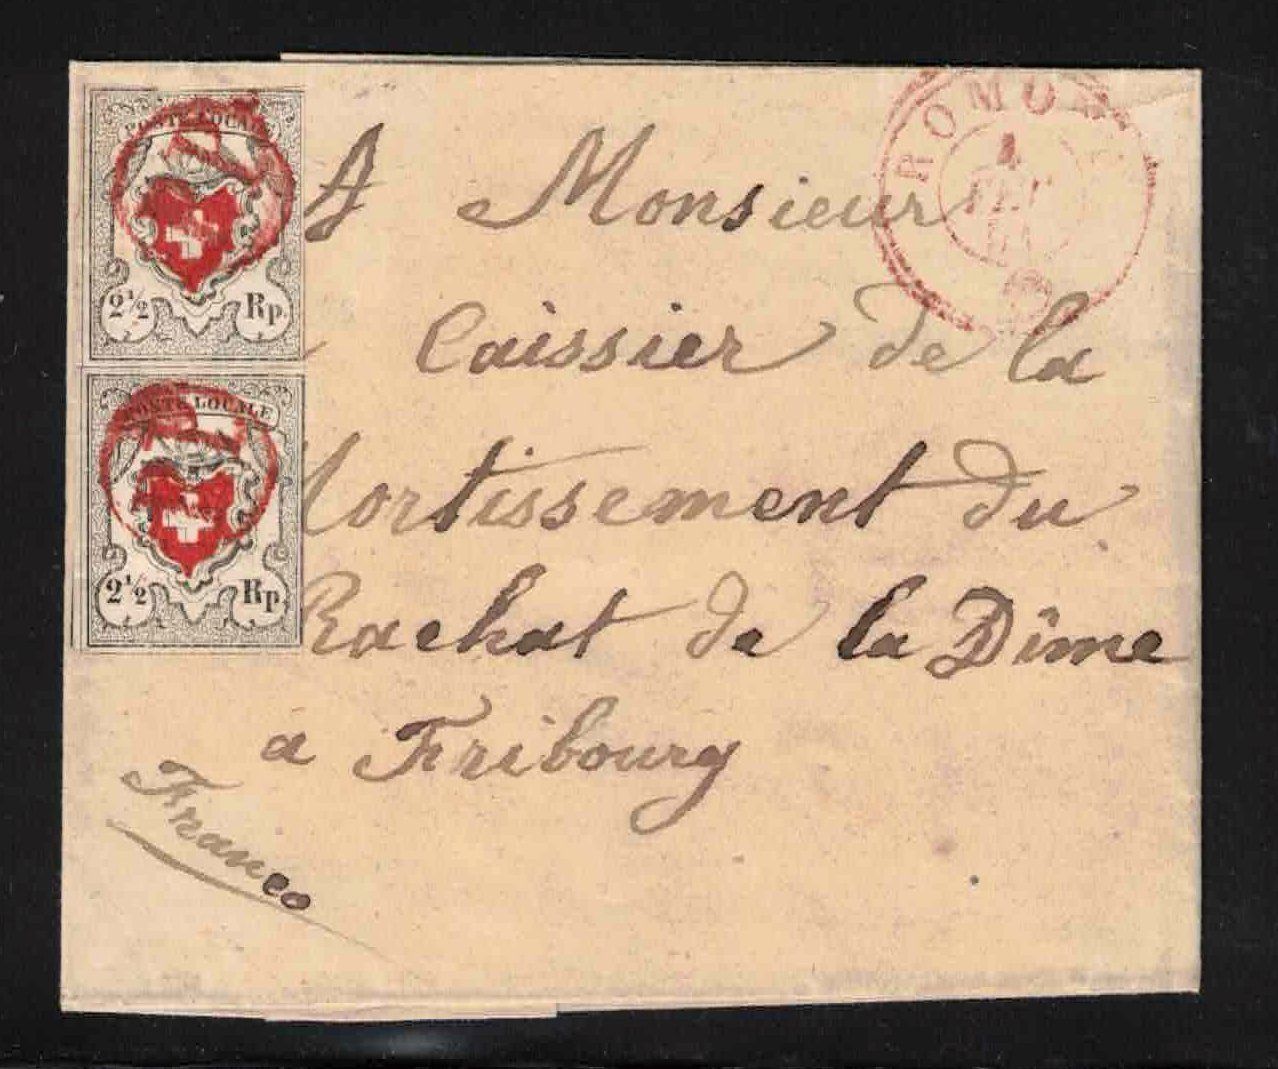 POSTE LOCALE
2½ Rp.
POSTE LOCALE
2½ Rp.
ROMONT
A Monsieur
Caissier de la
Mortissement du
Rachat de la Dîme
a Fribourg
Franco